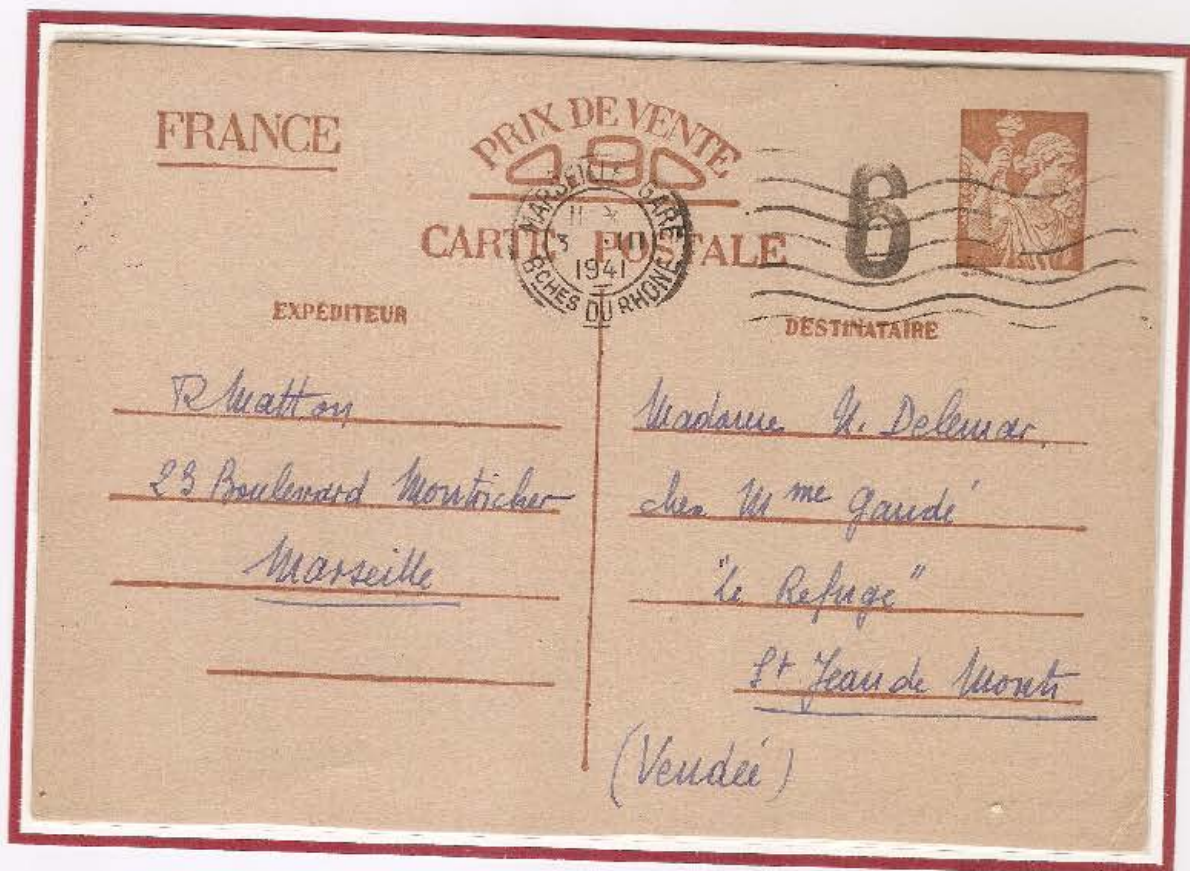 FRANCE
PRIX DE VENTE
0,90
CARTE POSTALE
MARSEILLE GARE
3 III
1941
BCHES DU RHONE
6
EXPÉDITEUR
R Matton
23 Boulevard Montricher
Marseille
DESTINATAIRE
Madame N. Delemar.
chez Mme Gaudé
"Le Refuge"
St Jean de Monts
(Vendée)